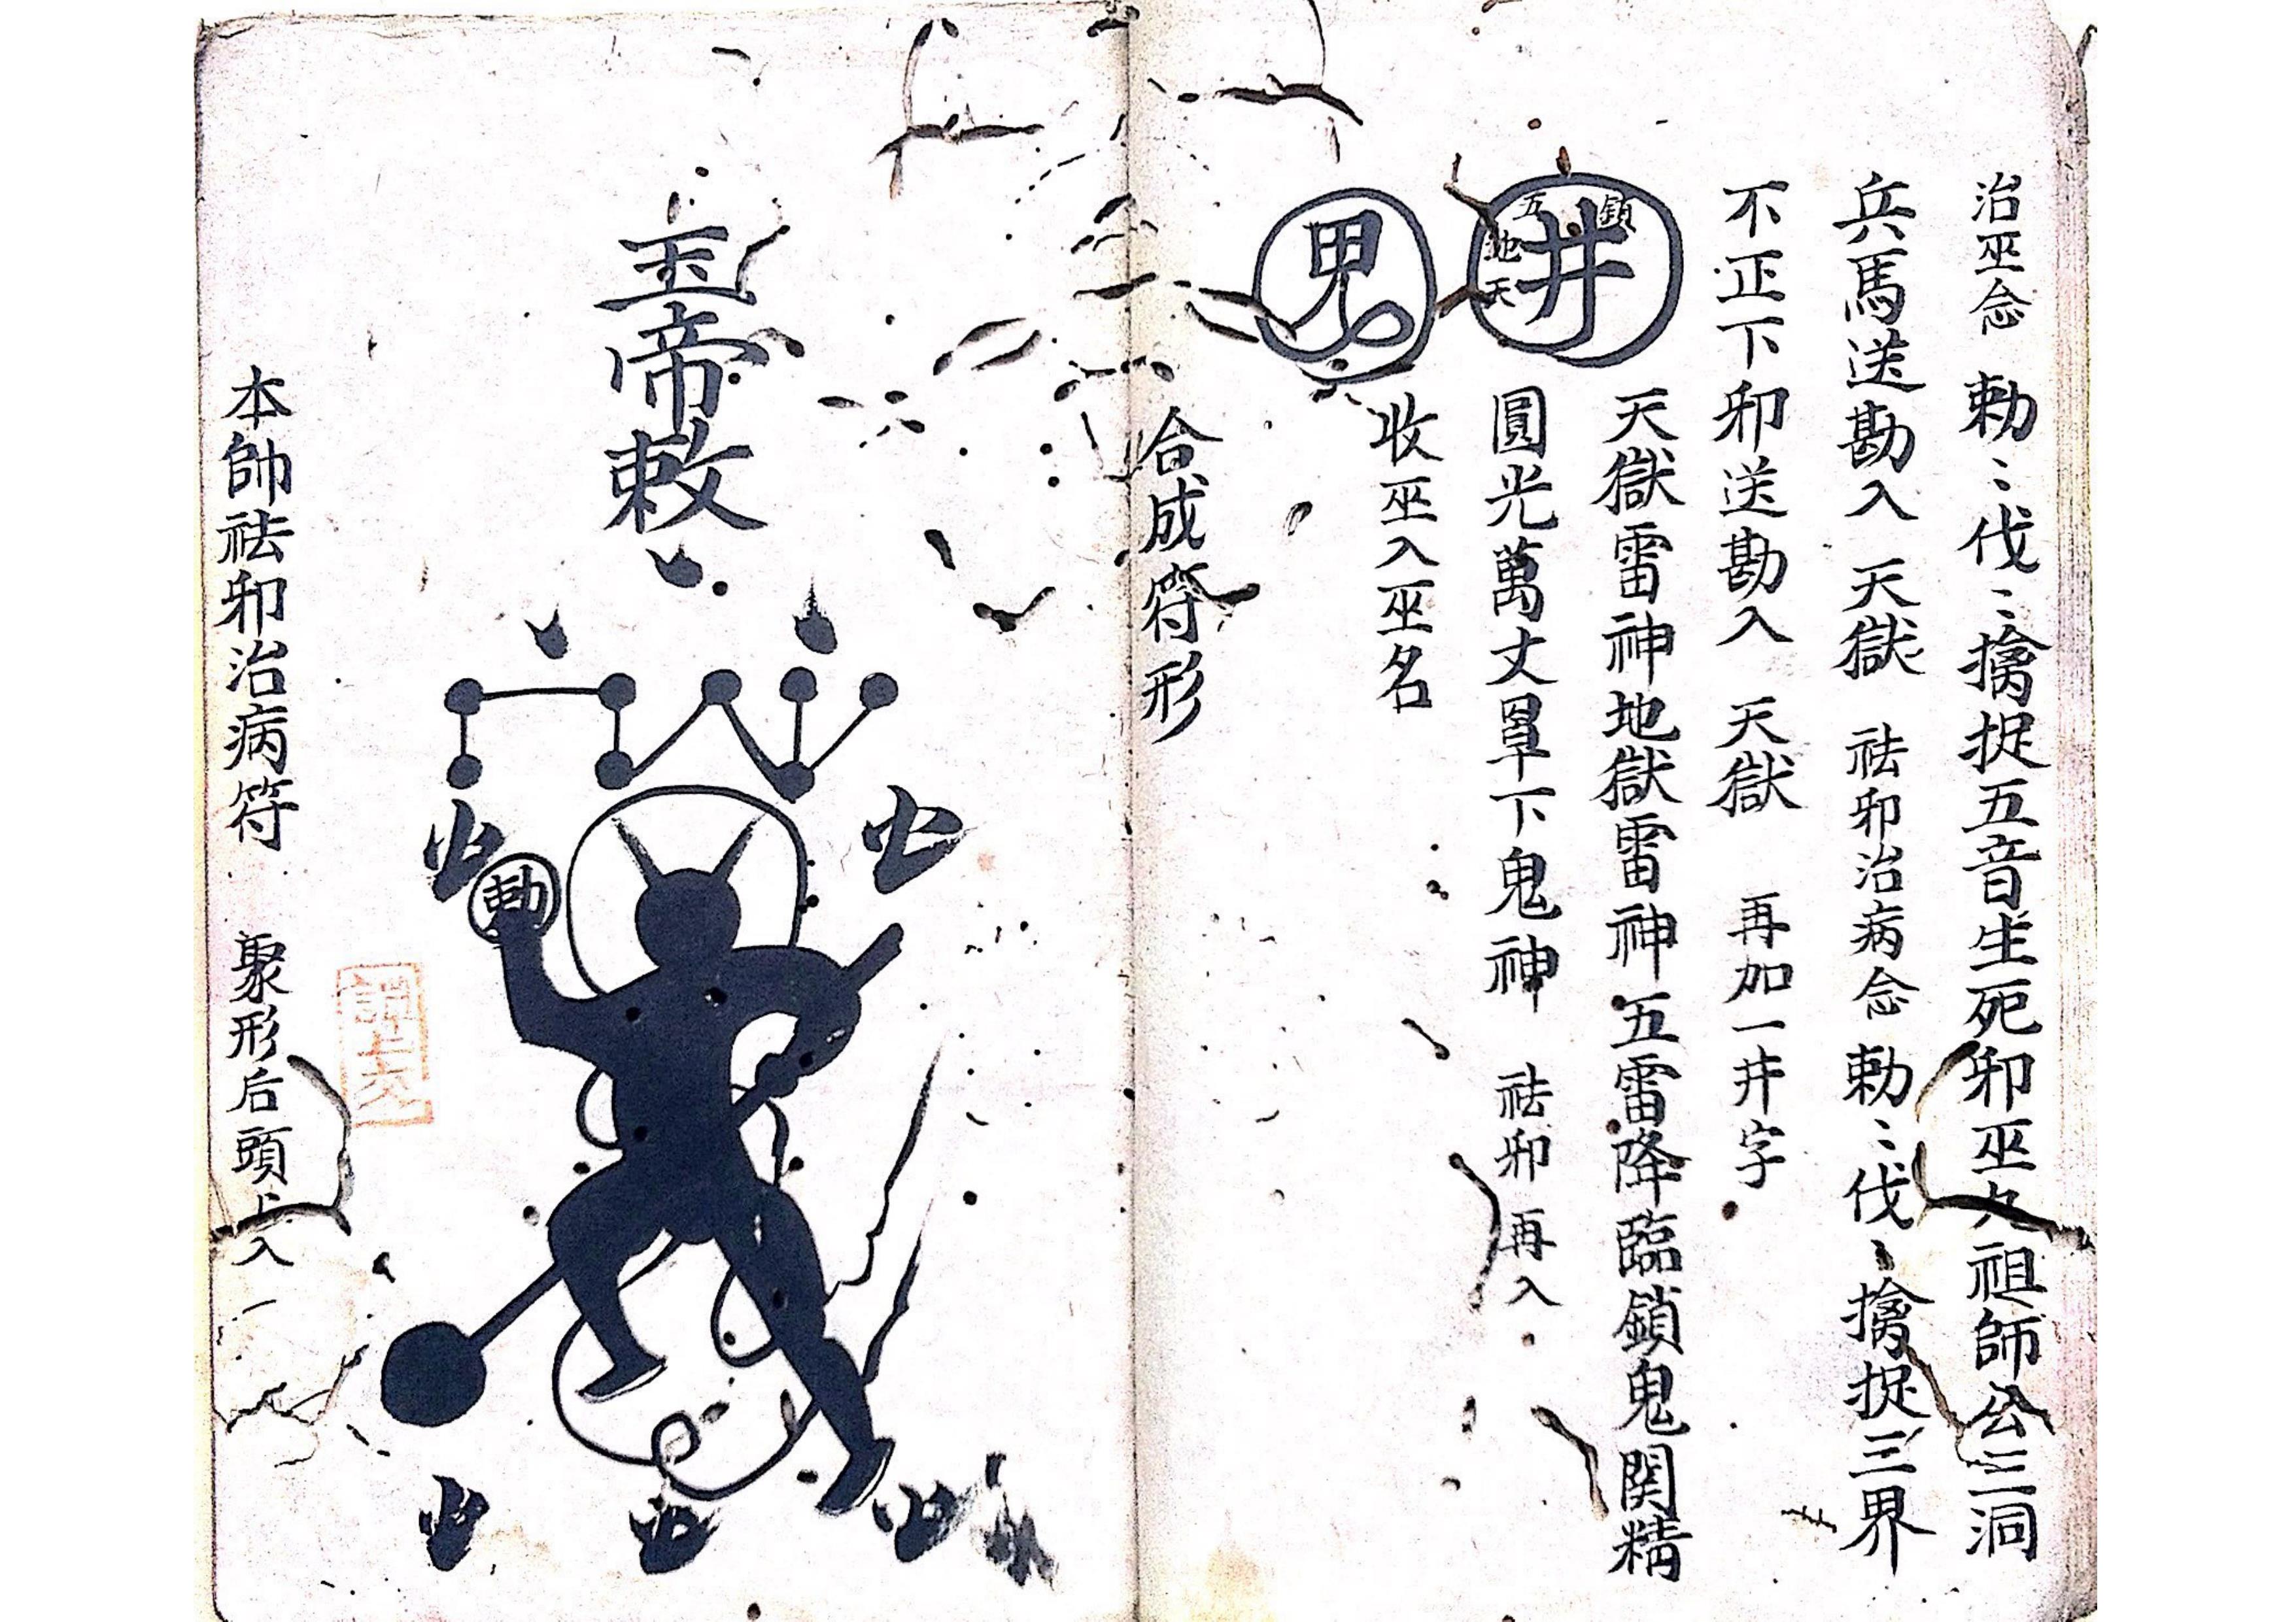 治巫念 勅〻伐〻擒捉五音生死邪巫九祖師公三洞
兵馬送勘入 天獄 祛邪治病念 勅〻伐〻擒捉三界
不正下邪送勘入 天獄 再加一井字
井 鎖 五 地 天
天獄雷神地獄雷神五雷降臨鎖鬼関精
圓光萬丈罩下鬼神 祛邪再入
鬼
收巫入巫名
合成符形
玉帝敕
勅
本帥祛邪治病符 聚形后頭上入一